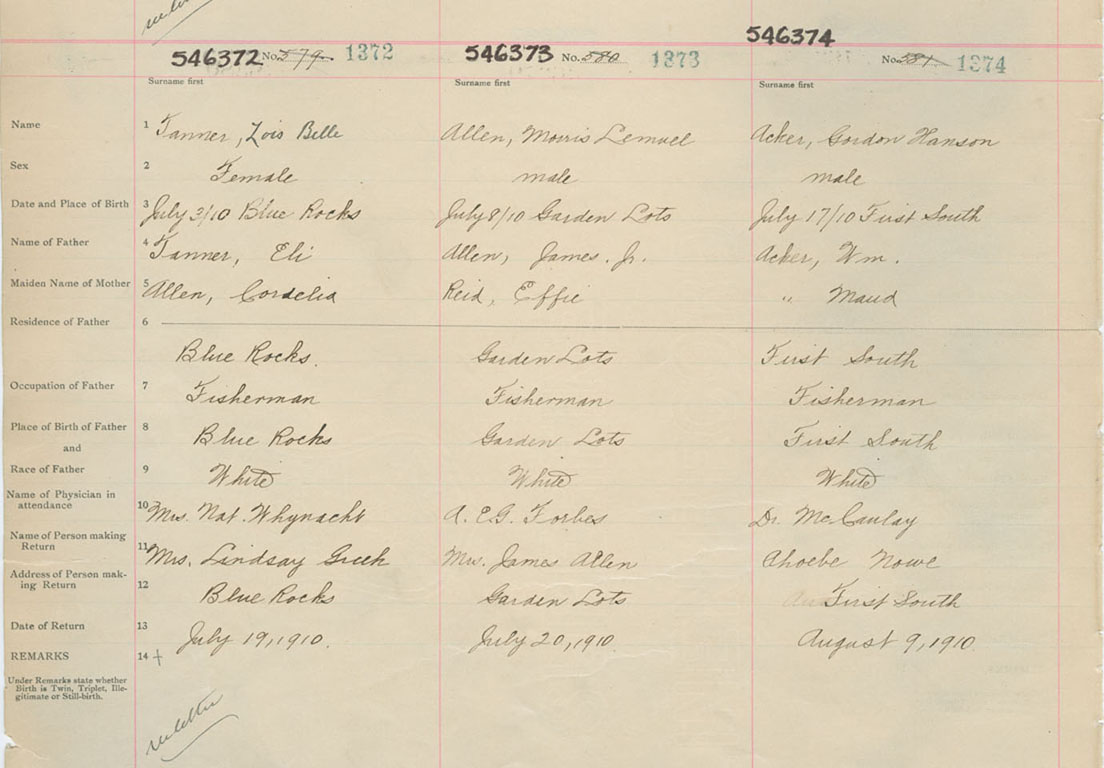 546372 No. 579 1372 546373 No. 580 1373 546374 No. 581 1374
Surname first Surname first Surname first
Name 1 Tanner, Lois Belle Allen, Morris Lemuel Acker, Gordon Hanson
Sex 2 Female male male
Date and Place of Birth 3 July 3/10 Blue Rocks July 8/10 Garden Lots July 17/10 First South
Name of Father 4 Tanner, Eli Allen, James. Jr. Acker, Wm.
Maiden Name of Mother 5 Allen, Cordelia Reid, Effie " Maud
Residence of Father 6
Blue Rocks. Garden Lots First South
Occupation of Father 7 Fisherman Fisherman Fisherman
Place of Birth of Father 8 Blue Rocks Garden Lots First South
and
Race of Father 9 White White White
Name of Physician in
attendance 10 Mrs. Nat. Whynacht A. E.G. Forbes Dr. McCaulay
Name of Person making
Return 11 Mrs. Lindsay Mrs. James Allen Phoebe Nowe
Address of Person mak-
ing Return 12 Blue Rocks Garden Lots First South
Date of Return 13 July 19, 1910. July 20, 1910. August 9, 1910.
REMARKS 14
Under Remarks state whether
Birth is Twin, Triplet, Ille-
gitimate or Still-birth.